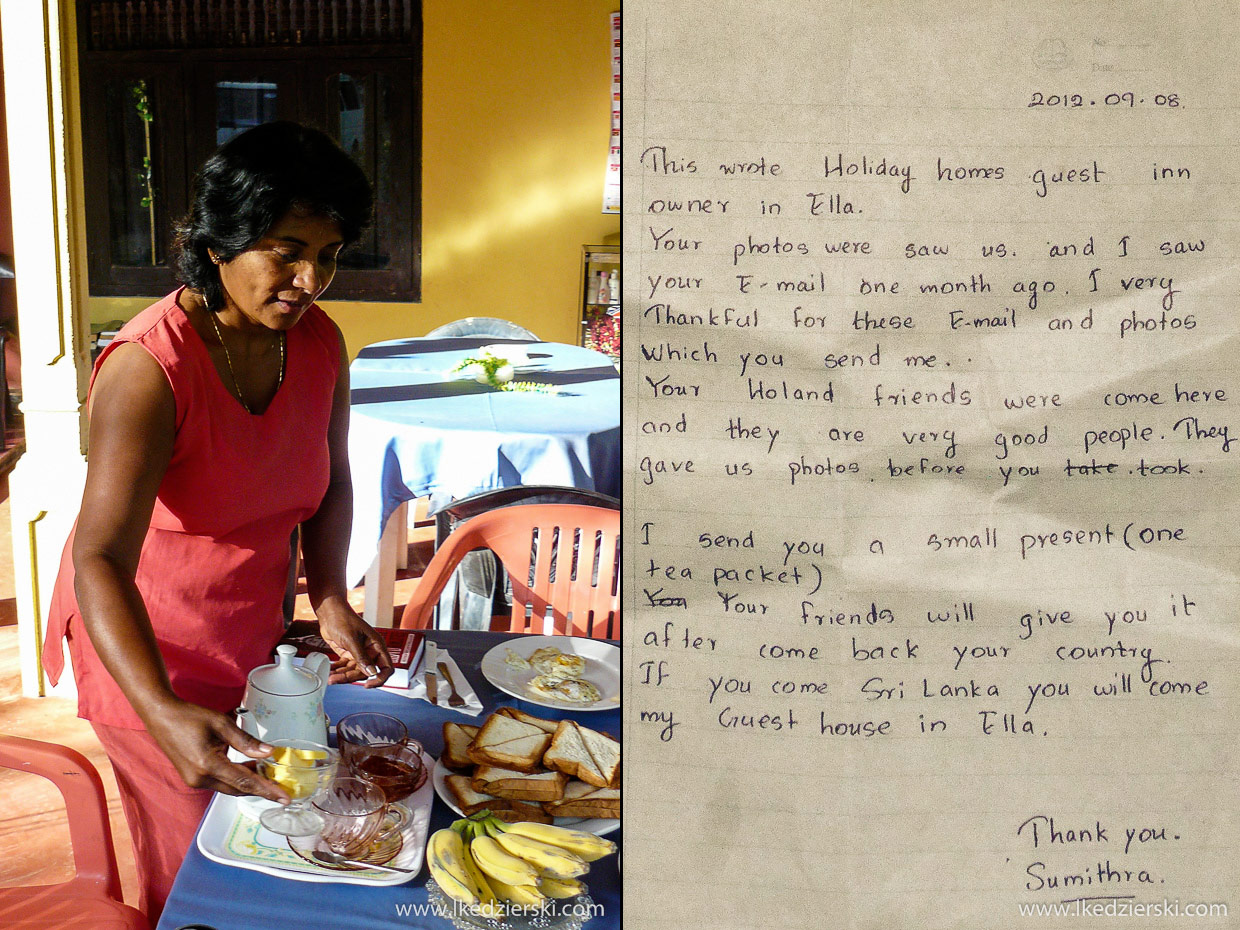 2012.09.08.
This wrote Holiday homes guest inn
owner in Ella.
Your photos were saw us. and I saw
your E-mail one month ago. I very
Thankful for these E-mail and photos
which you send me.
Your Holand friends were come here
and they are very good people. They
gave us photos. before you take. took.
I send you a small present (one
tea packet)
You Your friends will give you it
after come back your country.
If you come Sri Lanka you will come
my Guest house in Ella.
Thank you.
Sumithra.
www.lkedzierski.com
www.lkedzierski.com